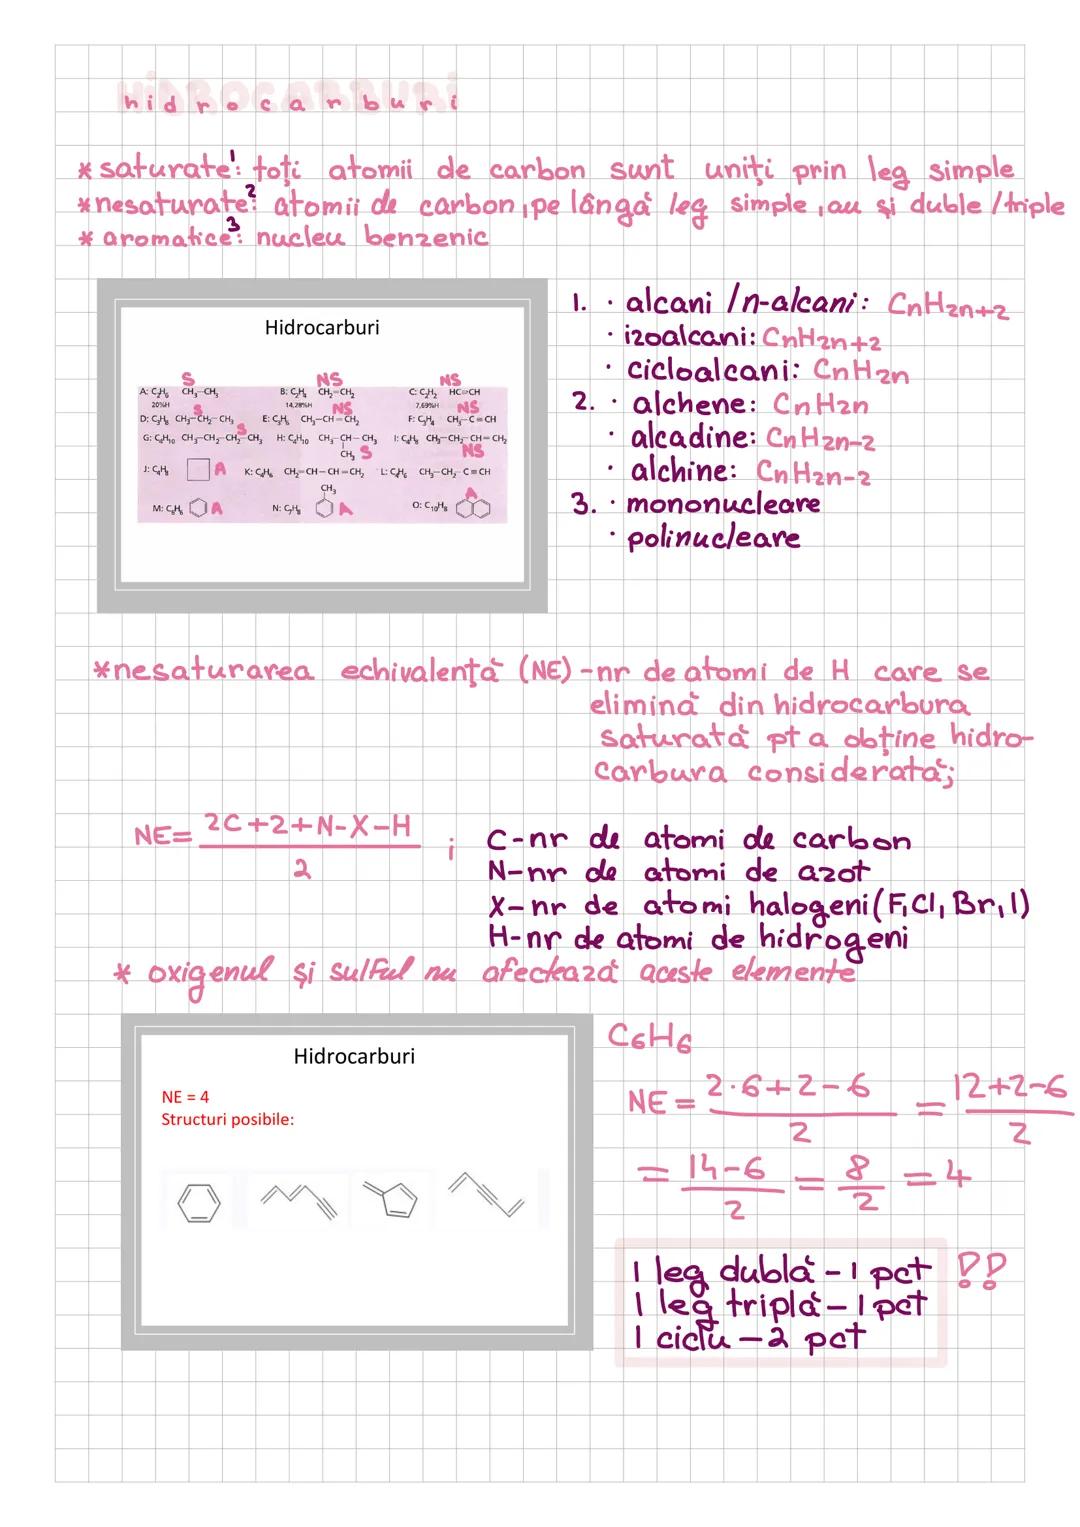 HIDROCARBURI
hidrocarburi
* saturate¹: toți atomii de carbon sunt uniți prin leg simple
* nesaturate²: atomii de carbon, pe lângă leg simple, au și duble / triple
* aromatice³: nucleu benzenic
Hidrocarburi
S NS NS
A: C₂H₆ CH₃-CH₃ B: C₂H₄ CH₂=CH₂ C: C₂H₂ HC≡CH
20%H 14,28%H 7,69%H
S NS NS
D: C₃H₈ CH₃-CH₂-CH₃ E: C₃H₆ CH₃-CH=CH₂ F: C₃H₄ CH₃-C≡CH
G: C₄H₁₀ CH₃-CH₂-CH₂-CH₃ S H: C₄H₁₀ CH₃-CH-CH₃ I: C₄H₈ CH₃-CH₂-CH=CH₂
CH₃ S NS
J: C₄H₈ A K: C₄H₆ CH₂=CH-CH=CH₂ L: C₄H₆ CH₃-CH₂-C≡CH
CH₃
M: C₆H₆ A N: C₇H₈ A O: C₁₀H₈ A
1. · alcani / n-alcani: CnH2n+2
· izoalcani: CnH2n+2
· cicloalcani: CnH2n
2. · alchene: CnH2n
· alcadine: CnH2n-2
· alchine: CnH2n-2
3. · mononucleare
· polinucleare
* nesaturarea echivalentă (NE) - nr de atomi de H care se
elimină din hidrocarbura
saturată pt a obține hidro-
carbura considerată;
NE = 2C+2+N-X-H / 2 ; C - nr de atomi de carbon
N - nr de atomi de azot
X - nr de atomi halogeni (F, Cl, Br, I)
H - nr de atomi de hidrogeni
* oxigenul și sulful nu afectează aceste elemente
Hidrocarburi
NE = 4
Structuri posibile:
C₆H₆
NE = 2·6+2-6 / 2 = 12+2-6 / 2
= 14-6 / 2 = 8 / 2 = 4
1 leg dublă - 1 pct !!
1 leg triplă - 1 pct
1 ciclu - 2 pct